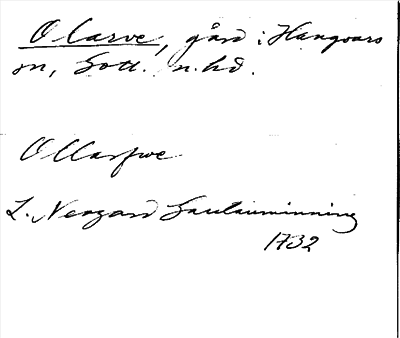 Olarve, gård i Hangvars
sn, Gotl. n. hd.
Ollarfwe
L. Neogard Gautauminning
1732